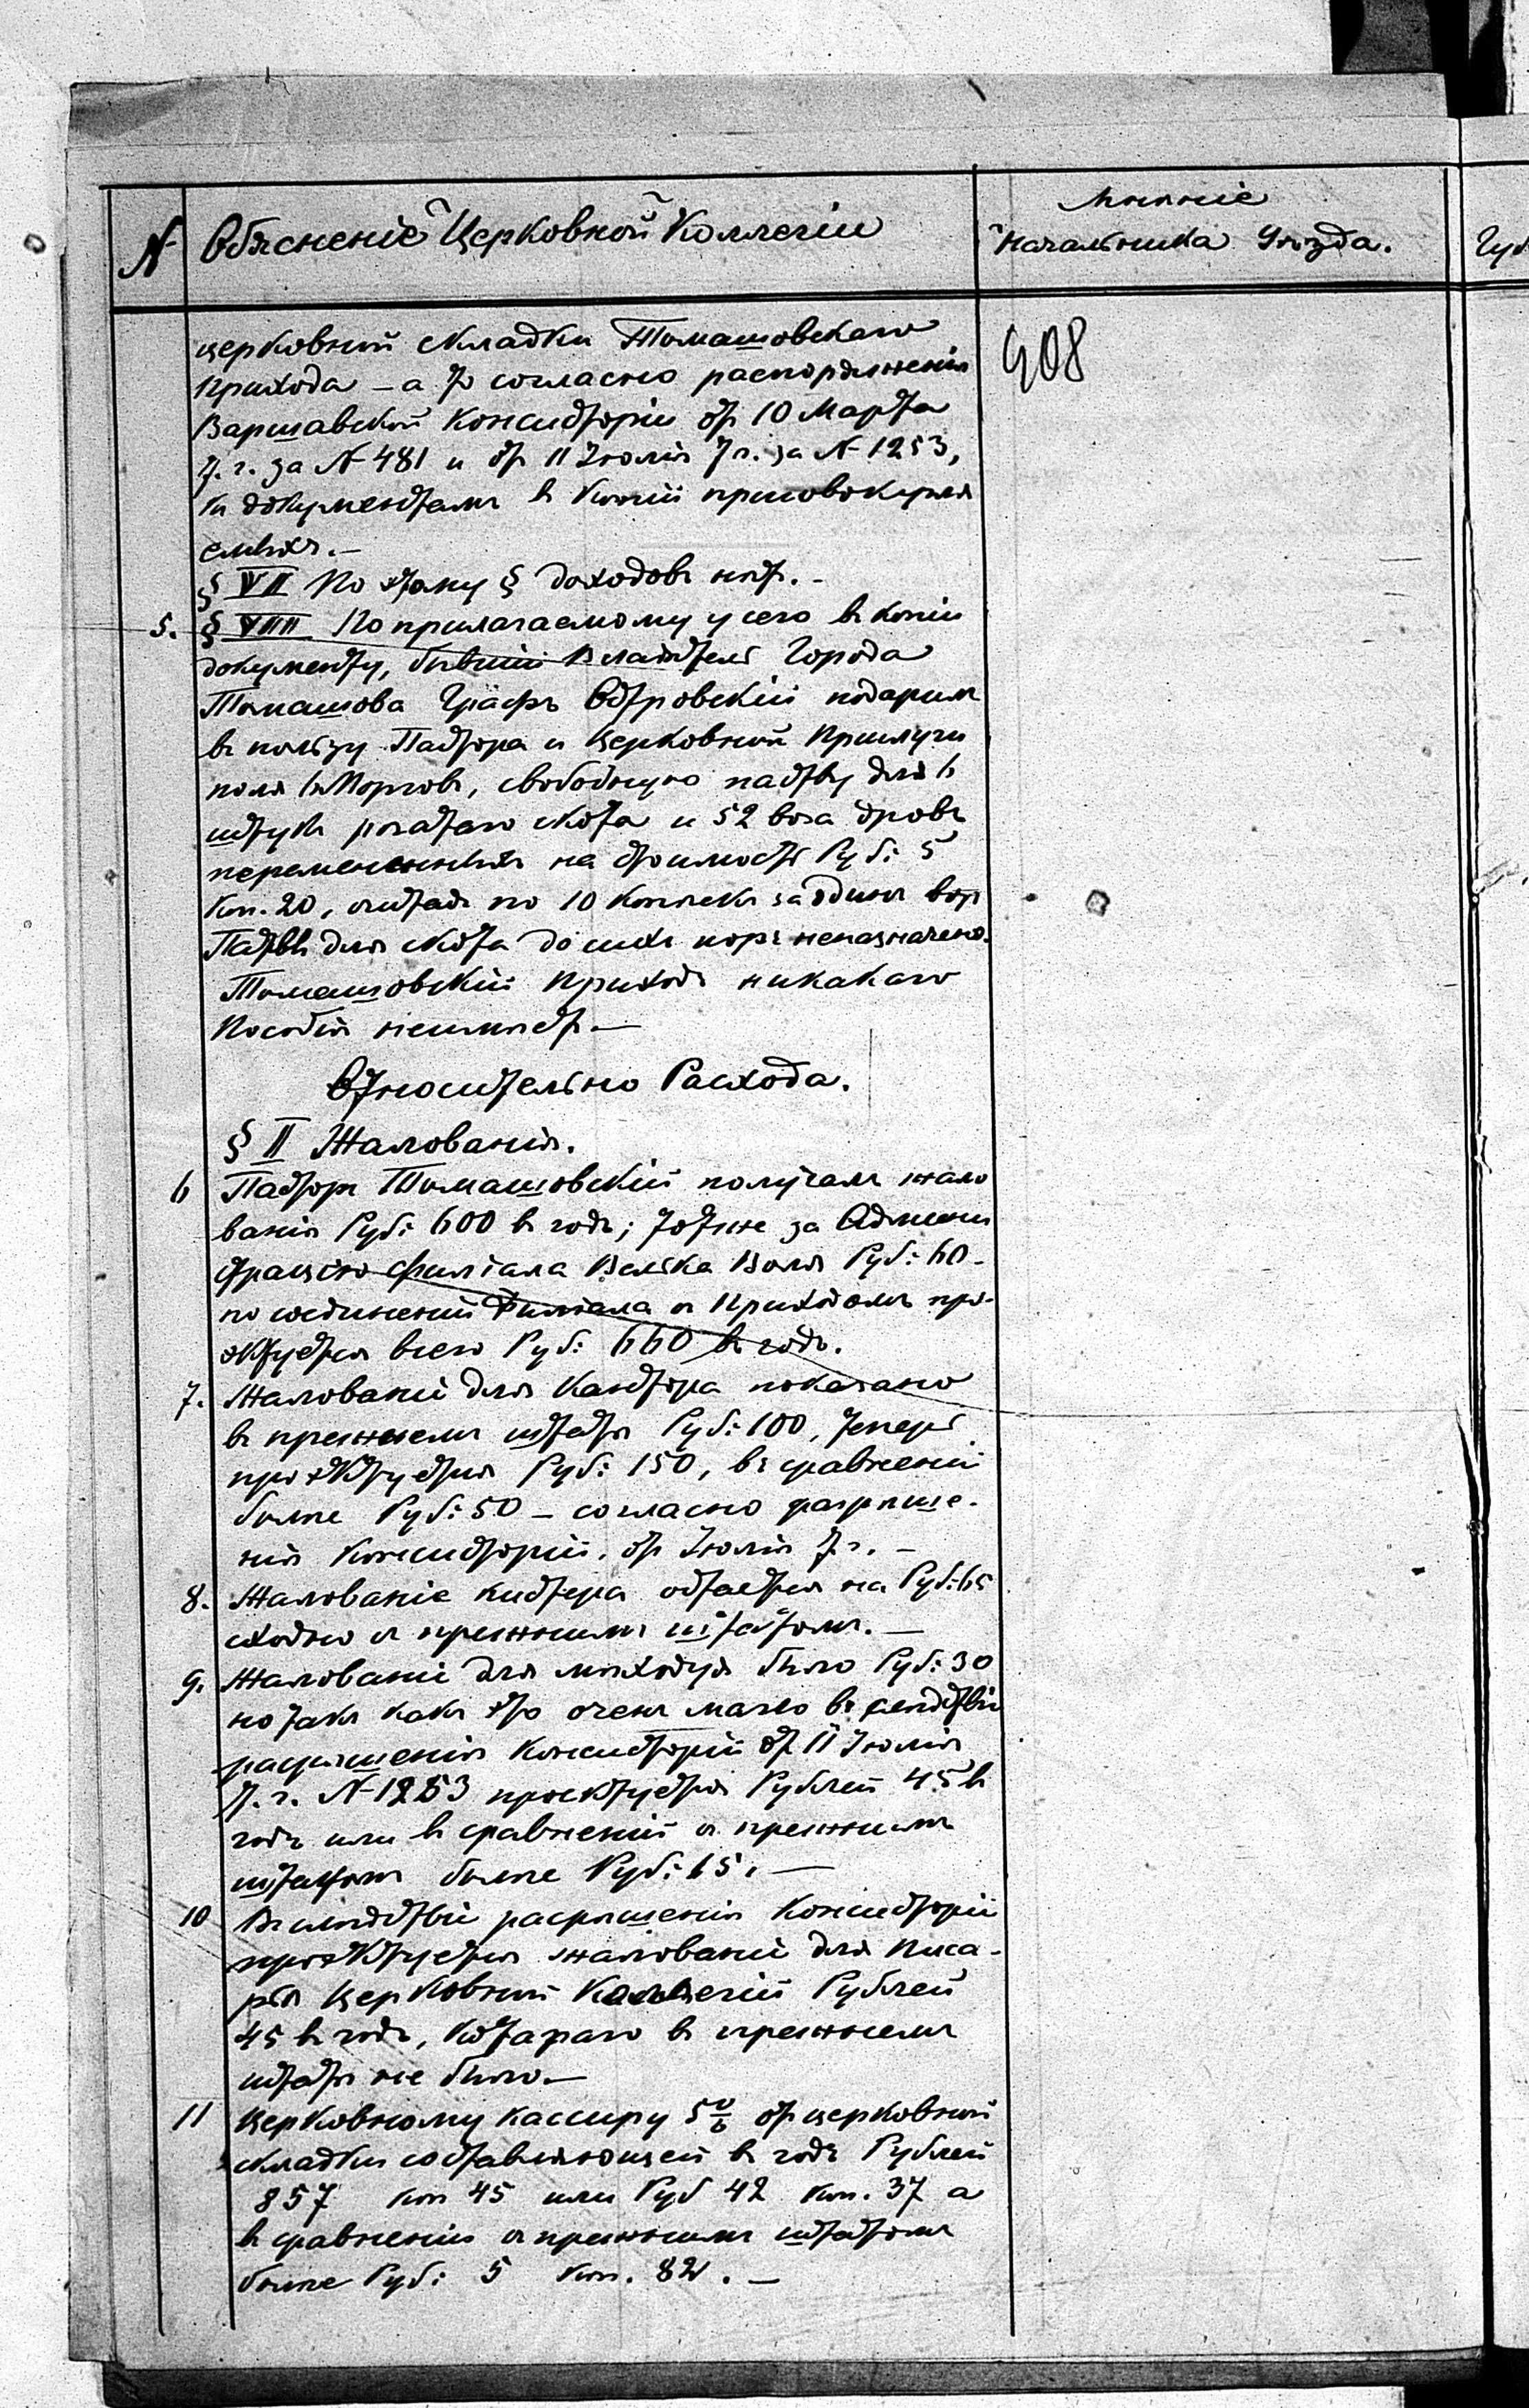 N Объясненіе Церковной Коллегіи
Мнѣніе
Начальника Уѣзда.
Губ
408
церковной складки Томашовскаго
Прихода – а то согласно распоряженія
Варшавской Консисторіи от 10 Марта
т. г. за N 481 и от 11 Іюля т г. за N 1253,
къ документамъ въ копіи присовокупля
емыхъ. –
§ VII По этому § доходовъ нѣт. –
5. § VIII По прилагаемому у сего въ копіи
документу, бывшій Владѣтель Города
Томашова Графъ Островскій подарилъ
въ пользу Пастора и Церковной Прислуги
поля 6 Морговъ, свободную паству для 6
штукъ рогатаго скота и 52 воза дровъ
перемененныхъ на стоимость Руб: 5
Коп. 20, считая по 10 Копѣекъ за одинъ воз
Паствы для скота до сихъ поръ неназначено.
Томашовскій Приходъ никакаго
Пособія неимѣет. –
Относительно Расхода.
§ II Жалованія.
6 Пасторъ Томашовскій получалъ жало
ванія Руб: 600 въ годъ; тотже за Админи
страцію Филіала Велька Воля Руб: 60 –
по соединеніи Филіала съ Приходомъ про-
эктуется всего Руб: 660 въ годъ.
7. Жалованіе для Кантора показано
въ прежнемъ штатѣ Руб: 100, теперь
проэктуется Руб: 150, въ сравненіи
болѣе Руб: 50 – согласно разрѣше-
нія Консисторіи. от Іюля т. г. –
8. Жалованіе кистера остается на Руб: 65
сходно съ прежнимъ штатомъ. –
9. Жалованіе для мѣходуя было Руб: 30
но такъ какъ это очень мало въ слѣдствіи
разрѣшенія Консисторіи от 11 Іюля
т. г. N 1253 проектуется Рублей 45 въ
годъ или въ сравненіи съ прежнимъ
штатомъ болѣе Руб: 15. –
10 Вслѣдствіе разрѣшенія Консисторіи
проэктуется жалованіе для Писа-
ря Церковной Коллегіи Рублей
45 въ годъ, котараго въ прежнемъ
штатѣ не было. –
11 Церковному кассиру 5% от церковной
складки составляющей въ годъ Рублей
857 Коп 45 или Руб 42 Коп. 37 а
въ сравненіи съ прежнимъ штатомъ
болѣе Руб: 5 Коп. 82. –